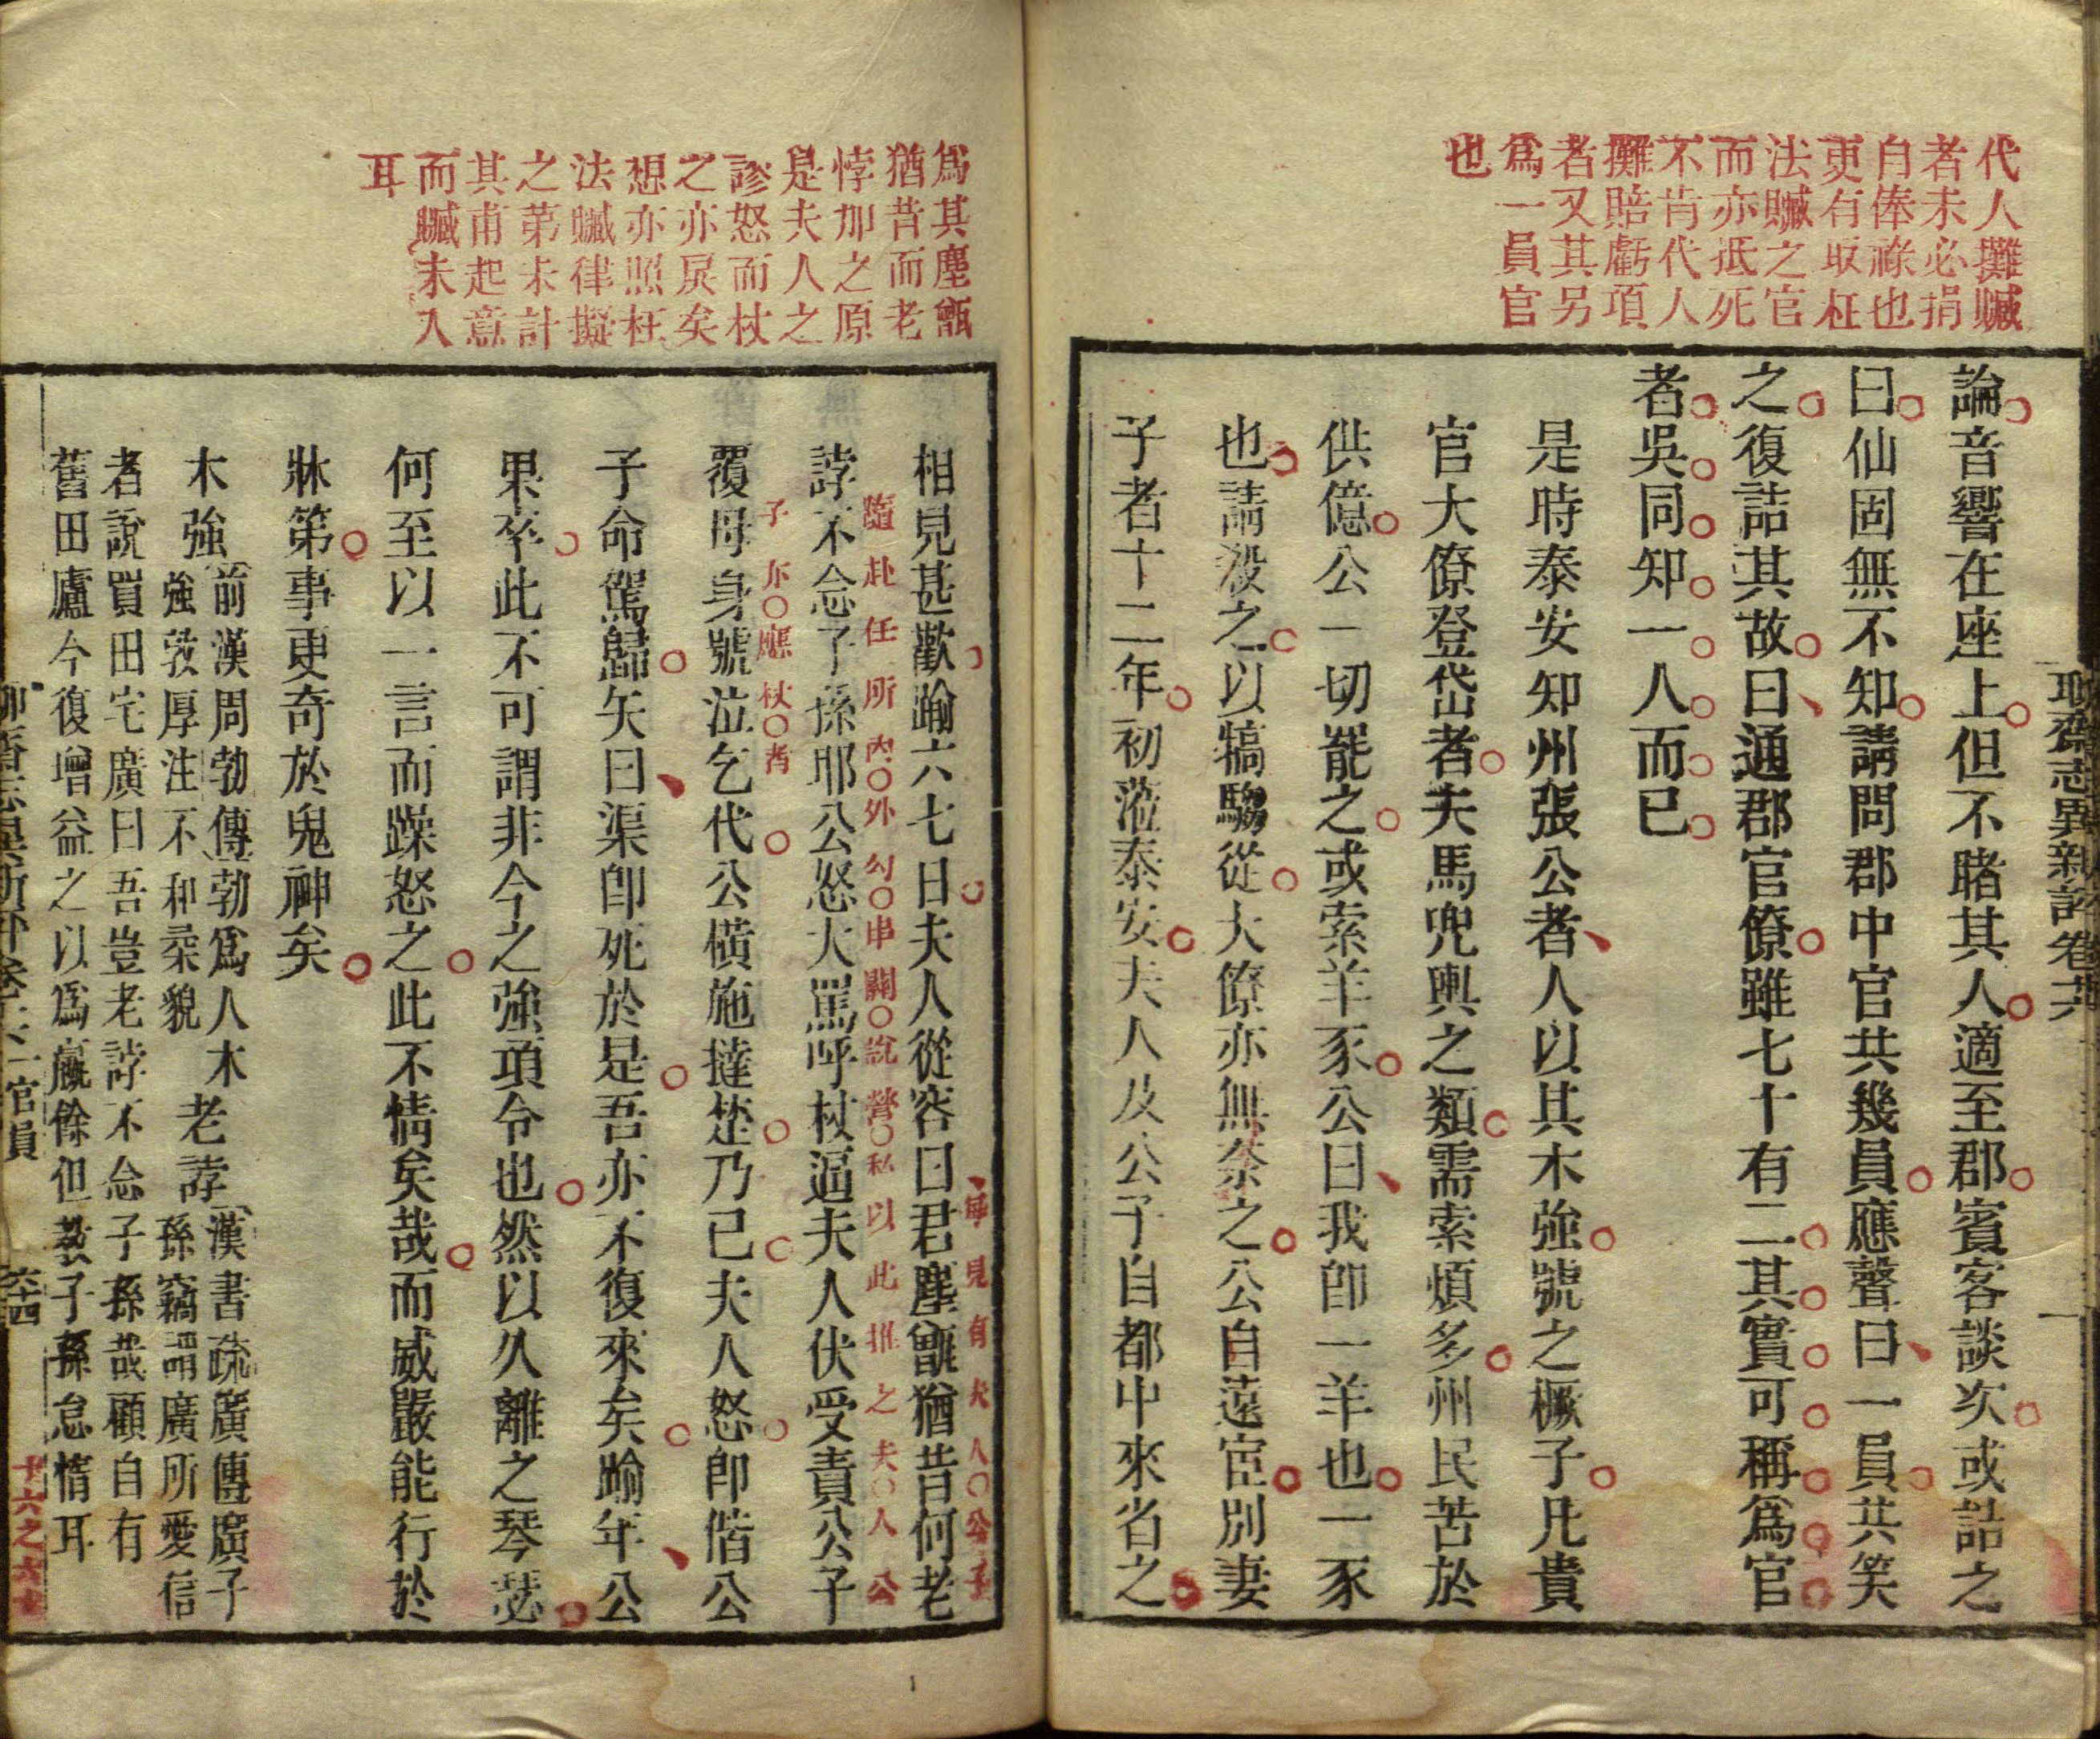 代人攤贓
者未必捐
自俸祿也
更有取枉
法贓之官
而亦抵死
不肯代人
攤賠虧項
者又其另
爲一員官
也
聊齋志異新評卷十六
論音響在座上但不睹其人適至郡賓客談次或詰之
曰仙固無不知請問郡中官共幾員應聲曰一員共笑
之復詰其故曰通郡官僚雖七十有二其實可稱爲官
者吳同知一人而已
是時泰安知州張公者人以其木強號之橛子凡貴
官大僚登岱者夫馬兜輿之類需索煩多州民苦於
供億公一切罷之或索羊豕公曰我卽一羊也一豕
也請殺之以犒騶從大僚亦無奈之公自遠宦別妻
子者十二年初蒞泰安夫人及公子自都中來省之
爲其塵甑
猶昔而老
悖加之原
是夫人之
謬怒而杖
之亦戾矣
想亦照枉
法贓律擬
之第未計
其甫起意
而贓未入
耳
相見甚歡踰六七日夫人從容曰君塵甑猶昔何老
誖不念子孫耶公怒大罵呼杖逼夫人伏受責公子
覆母身號泣乞代公橫施撻楚乃已夫人怒卽偕公
子命駕歸矢曰渠卽死於是吾亦不復來矣踰年公
果卒此不可謂非今之強項令也然以久離之琴瑟
何至以一言而躁怒之此不情矣哉而威嚴能行於
牀第事更奇於鬼神矣
木強 前漢周勃傳勃爲人木
強敦厚注不和柔貌
老誖 漢書疏廣傳廣子
孫竊謂廣所愛信
者說買田宅廣曰吾豈老誖不念子孫哉顧自有
舊田廬今復增益之以爲贏餘但敎子孫怠惰耳
隨赴任所內外勾串關說營私以此推之夫人公
子亦應杖者
聊齋志異新評卷十六 官員
六十四